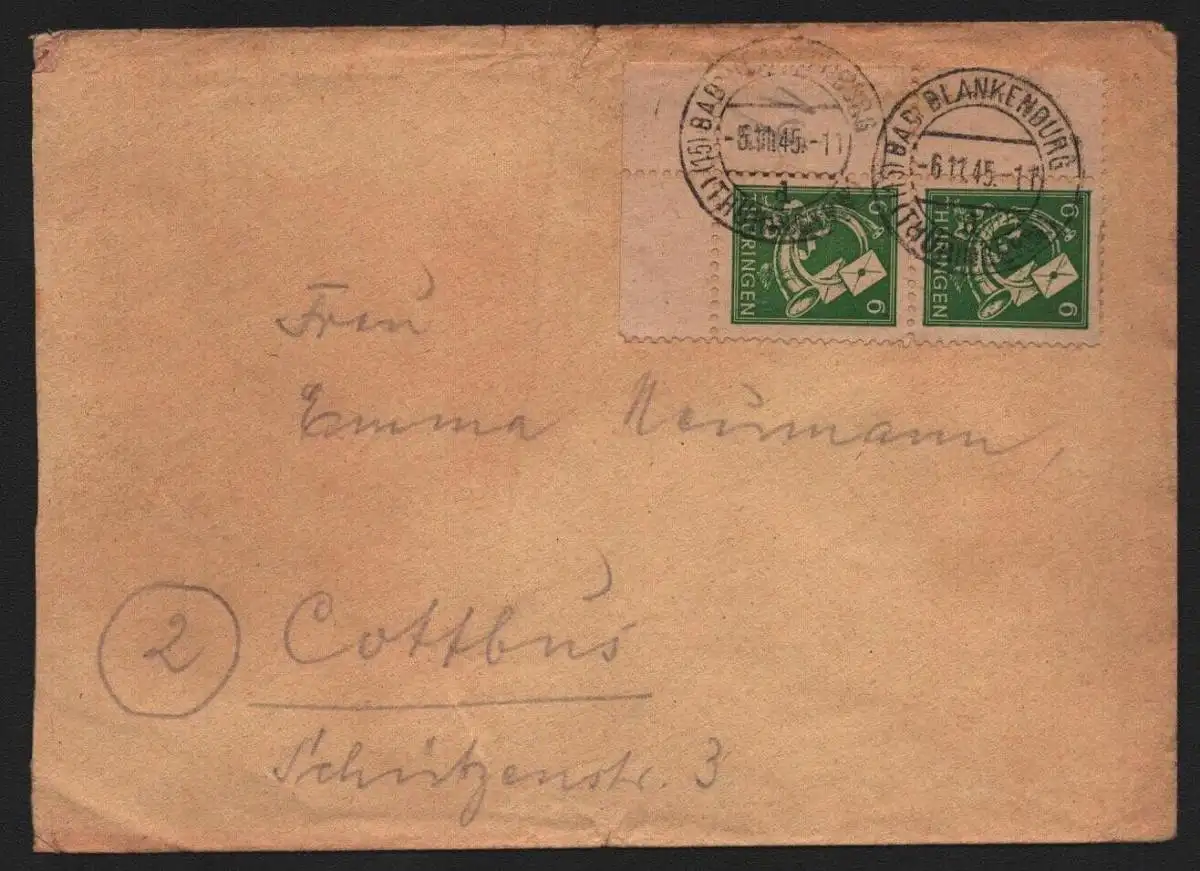 (15) BAD BLANKENBURG
-6.11.45.-11
d
(THÜR.WALD)
(15) BAD BLANKENBURG
-6.11.45.-11
(THÜR.WALD)
6 THÜRINGEN 6
6 THÜRINGEN 6
Frau
Emma Neumann,
2 Cottbus
Schützenstr. 3